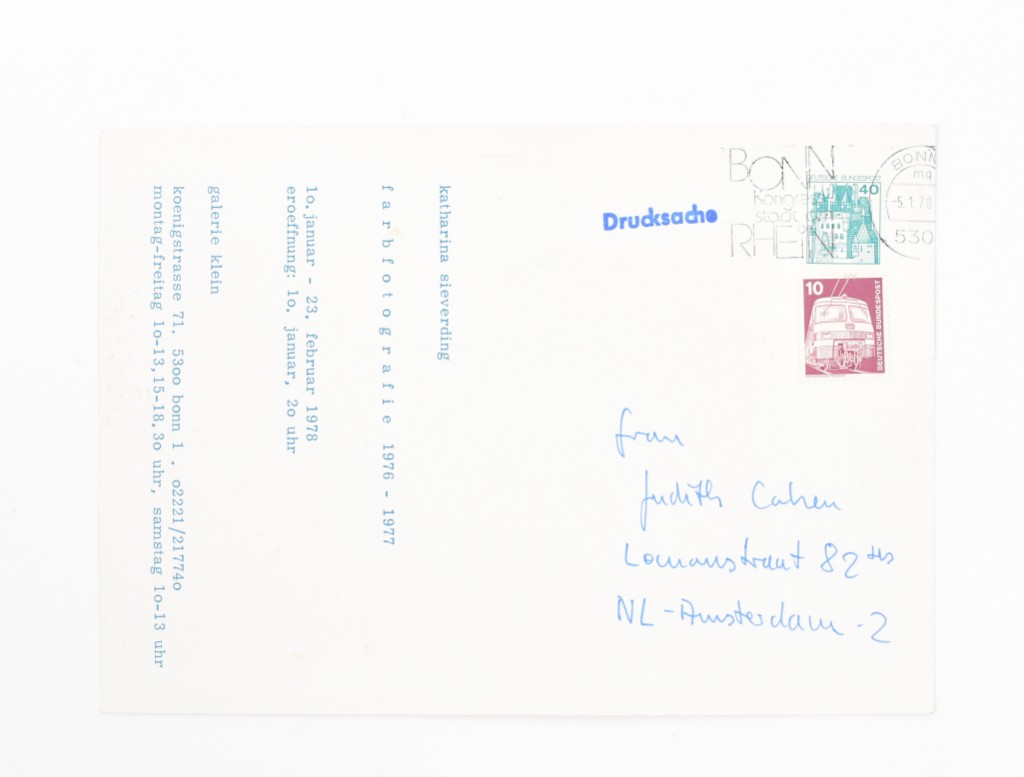 katharina sieverding
f a r b f o t o g r a f i e 1976 - 1977
1o.januar - 23. februar 1978
eroeffnung: 1o. januar, 2o uhr
galerie klein
koenigstrasse 71. 53oo bonn 1 . o2221/21774o
montag-freitag 1o-13,15-18.3o uhr, samstag 1o-13 uhr
Drucksache
BONN
Kongress
stadt am
RHEIN
DEUTSCHE BUNDESPOST
40
BONN
mq
-5.1.78
530
10
DEUTSCHE BUNDESPOST
Frau
Judith Cahen
Lomanstraat 82 hs
NL-Amsterdam-2